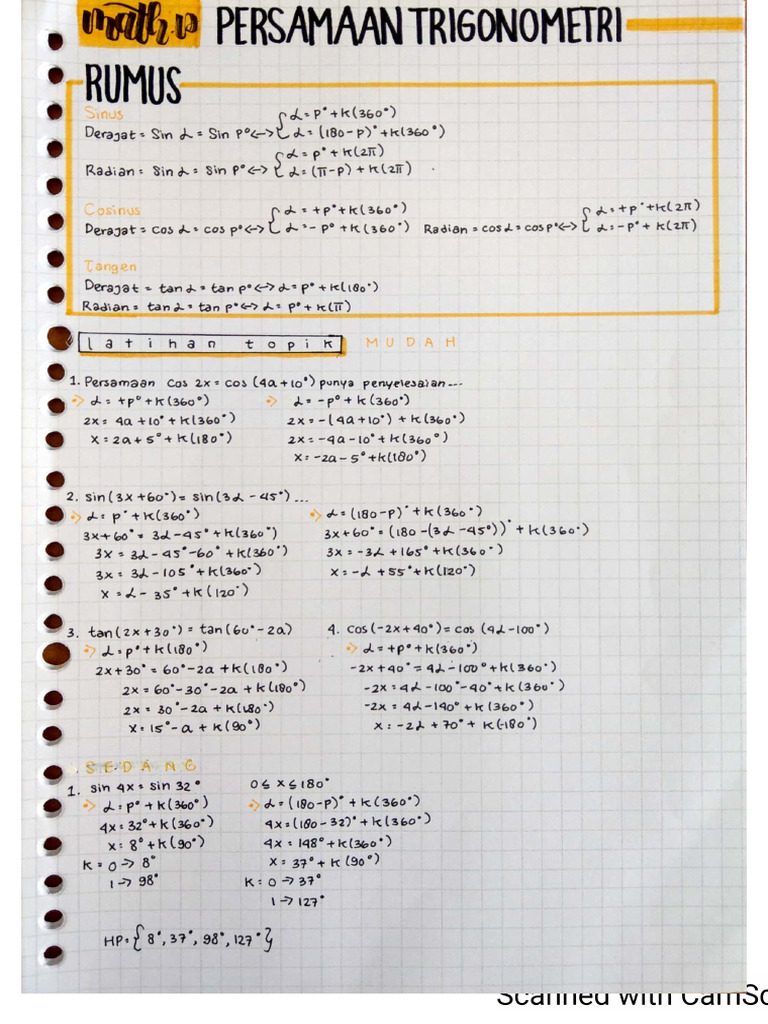 math.12 PERSAMAAN TRIGONOMETRI
RUMUS
Sinus
Derajat = Sin α = Sin P° <-> { α = P° + K(360°)
α = (180-P)° + K(360°)
Radian = Sin α = Sin P° <-> { α = P° + K(2π)
α = (π-P) + K(2π)
Cosinus
Derajat = cos α = cos P° <-> { α = +P° + K(360°)
α = -P° + K(360°)
Radian = cos α = cos P° <-> { α = +P° + K(2π)
α = -P° + K(2π)
Tangen
Derajat = tan α = tan P° <-> α = P° + K(180°)
Radian = tan α = tan P° <-> α = P° + K(π)
latihan topik MUDAH
1. Persamaan Cos 2x = cos (4a+10°) punya penyelesaian---
α = +P° + K(360°)
2x = 4a + 10° + K(360°)
x = 2a + 5° + K(180°)
α = -P° + K(360°)
2x = -(4a+10°) + K(360°)
2x = -4a-10° + K(360°)
x = -2a-5° + K(180°)
2. sin(3x+60°) = sin(3α-45°)...
α = P° + K(360°)
3x+60° = 3α-45° + K(360°)
3x = 3α-45°-60° + K(360°)
3x = 3α-105° + K(360°)
x = α-35° + K(120°)
α = (180-P)° + K(360°)
3x+60° = (180-(3α-45°))° + K(360°)
3x = -3α + 165° + K(360°)
x = -α + 55° + K(120°)
3. tan(2x+30°) = tan(60°-2a)
α = P° + K(180°)
2x+30° = 60°-2a + K(180°)
2x = 60°-30°-2a + K(180°)
2x = 30°-2a + K(180°)
x = 15°-a + K(90°)
4. Cos(-2x+40°) = cos(4α-100°)
α = +P° + K(360°)
-2x+40° = 4α-100° + K(360°)
-2x = 4α-100°-40° + K(360°)
-2x = 4α-140° + K(360°)
x = -2α + 70° + K(-180°)
SEDANG
1. Sin 4x = Sin 32° 0 ≤ x ≤ 180°
α = P° + K(360°)
4x = 32° + K(360°)
x = 8° + K(90°)
K = 0 -> 8°
1 -> 98°
α = (180-P)° + K(360°)
4x = (180-32)° + K(360°)
4x = 148° + K(360°)
x = 37° + K(90°)
K = 0 -> 37°
1 -> 127°
HP = {8°, 37°, 98°, 127°}
Scanned with CamSc